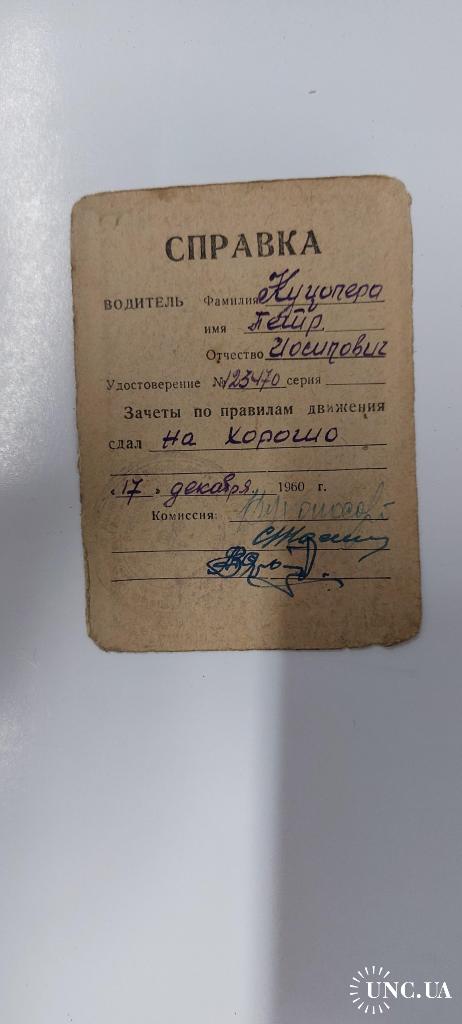 СПРАВКА
ВОДИТЕЛЬ Фамилия Куцопера
имя Петр
Отчество Иосипович
Удостоверение № 123470 серия
Зачеты по правилам движения
сдал на хорошо
„17" декабря 1960 г.
Комиссия:
UNC.UA